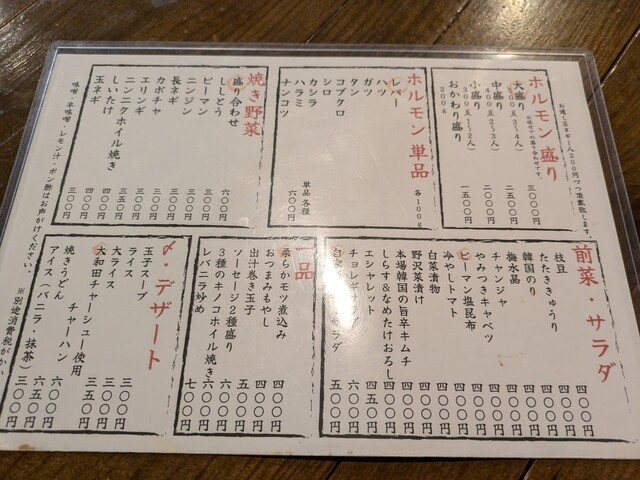 お通し玉ネギ一人200円づつ頂戴致します。
ホルモン盛り
お任せでの盛り合わせです。
大盛り
500g(3〜4人)
三〇〇〇円
中盛り
400g(2〜3人)
二五〇〇円
小盛り
300g(1〜2人)
二〇〇〇円
おかわり盛り
200g
一五〇〇円
ホルモン 単品
各100g
レバー
ハツ
ガツ
タン
コブクロ
シロ
カシラ
ハラミ
ナンコツ
単品各種
六〇〇円
焼き野菜
盛り合わせ
六〇〇円
ししとう
三〇〇円
ピーマン
三〇〇円
ニンジン
三〇〇円
長ネギ
三〇〇円
カボチャ
三〇〇円
エリンギ
三〇〇円
ニンニクホイル焼き
三五〇円
しいたけ
四〇〇円
玉ネギ
三〇〇円
味噌・辛味噌・レモン汁・ポン酢はお声がけください。
前菜・サラダ
枝豆
四〇〇円
たたききゅうり
四〇〇円
韓国のり
四〇〇円
梅水晶
四〇〇円
チャンジャ
四〇〇円
やみつきキャベツ
四〇〇円
ピーマン塩昆布
四〇〇円
冷やしトマト
四〇〇円
白菜漬物
四〇〇円
野沢菜漬け
四〇〇円
本場韓国の旨辛キムチ
四〇〇円
しらす&なめたけおろし
四〇〇円
エシャレット
四五〇円
チョレギサラダ
六〇〇円
サラダ
五〇〇円
一品
柔らかモツ煮込み
四〇〇円
おつまみもやし
四〇〇円
出汁巻き玉子
五〇〇円
ソーセージ2種盛り
五〇〇円
3種のキノコホイル焼き
六〇〇円
レバニラ炒め
七〇〇円
〆・デザート
玉子スープ
三〇〇円
大ライス
三〇〇円
ライス
大和田チャーシュー使用
チャーハン
焼きうどん
六五〇円
アイス(バニラ・抹茶)
三〇〇円
※別途消費税がか